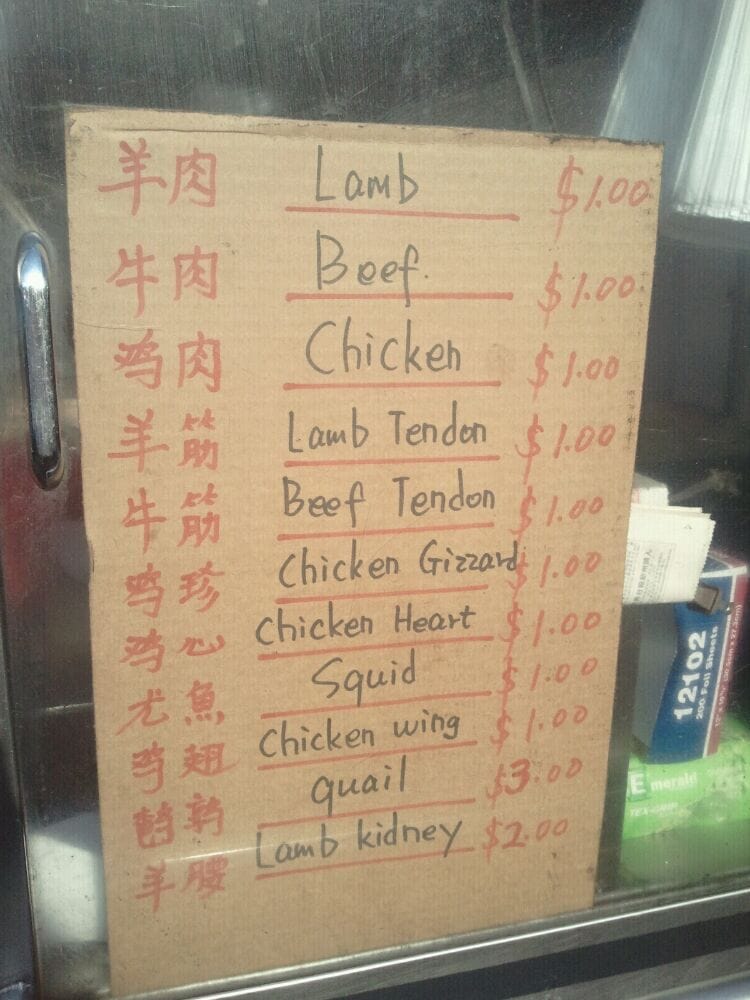 羊肉 Lamb $1.00
牛肉 Beef. $1.00
鸡肉 Chicken $1.00
羊筋 Lamb Tendon $1.00
牛筋 Beef Tendon $1.00
鸡珍 Chicken Gizzard $1.00
鸡心 Chicken Heart $1.00
尤魚 Squid $1.00
鸡翅 Chicken wing $1.00
鹌鹑 quail $3.00
羊腰 Lamb kidney $2.00
12102
200 Foil Sheets
Emerald